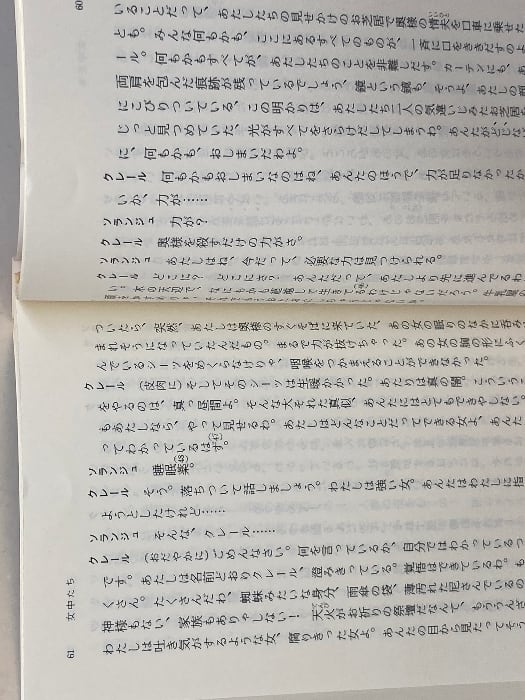 60
いることだって、あたしたちの見せかけのお芝居で奥様の情夫を口車に乗せた
とも。みんな何もかも、ここにあるすべてのものが、一斉に口をきききだすのよ
ール。何もかもすべてが、あたしたちのことを非難しだす。カーテンにも、あ
両肩を包んだ痕跡が残っているでしょう、鏡という鏡も、そうよ、あたしの
にこびりついている、この明かりは、あたしたち二人の気違いじみたお芝居
じっと見つめていた、光がすべてをさらけだしてしまうわ。あんたが
に、何もかも、おしまいだわよ。
クレール 何もかもおしまいなのはね、あんたのほうで、力が足りなかったか
いか、力が……
ソランジュ 力が?
クレール 奥様を殺すだけの力がさ。
ソランジュ あたしはね、今だって、必要な力は見つけられる。
クレール どこに? どこにさ? あんただって、あたしより先に進んでるわ
ついたら、突然、あたしは奥様のすぐそばに来ていた、あの女の眠りのなかに呑み
まれそうになっていたんだもの。まるで力が抜けちゃった。あの女の胸の形にふく
んでいるシーツをめくらなけりゃ、咽喉をつかまえることができなかった。
クレール (皮肉に)そしてそのシーツは生暖かかった。あたりは真の闇。こういう
をやるのは、真っ昼間よ。そんな大それた真似、あんたにはとてもできやしない。
もあたしなら、やって見せるわ。あたしはどんなことだってできる女よ、あんた
ってわかっているはず。
ソランジュ 睡眠薬。
クレール そう。落ちついて話しましょう。わたしは強い女。あんたはわたしに指
ようとしたけれど……
ソランジュ そんな、クレール……
クレール (おだやかに)ごめんなさい。何を言っているか、自分ではわかっているつ
です。あたしは名前どおりクレール、澄みきっている。覚悟はできているわ。も
くさん。たくさんだわ、蜘蛛みたいな身分、雨傘の袋、薄汚れた尼さんでいるの
神様もない、家族もありゃしない! 天火がお祈りの祭壇だなんて、もううん
わたしは吐き気がするような女、腐りきった女よ。あんたの目から見たってそう
61 女中たち